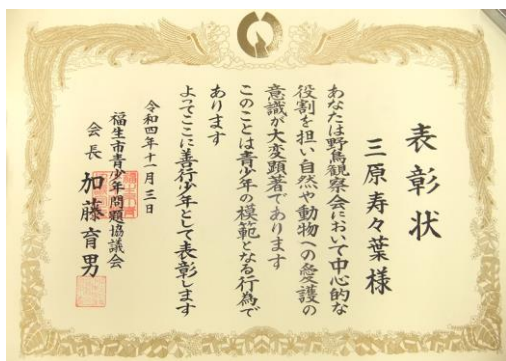 表彰状
三原寿々葉様
あなたは野鳥観察会において中心的な
役割を担い自然や動物への愛護の
意識が大変顕著であります
このことは青少年の模範となる行為で
あります
よってここに善行少年として表彰します
令和四年十一月三日
福生市青少年問題協議会
会長 加藤育男